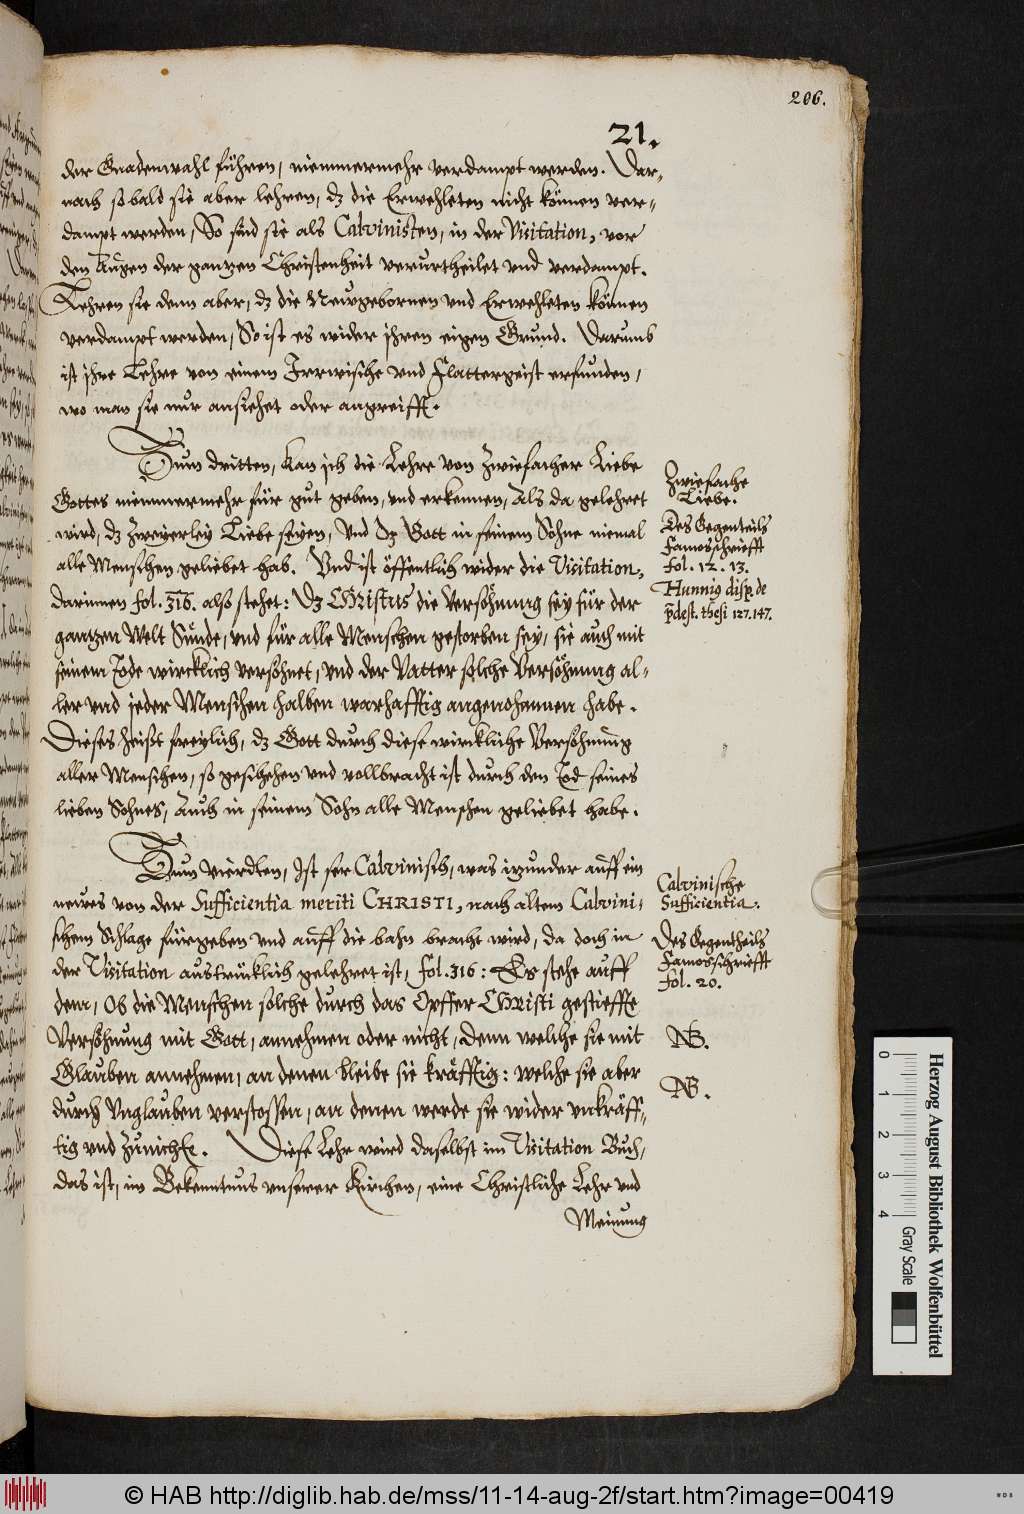 206.
21.
der Gnadenwahl führen, niemmermehr verdampt werden. Dar-
nach so bald sie aber lehren, dz die Erwehleten nicht können ver-
dampt werden, So sind sie als Calvinisten, in der Visitation, vor
den Augen der gantzen Christenheit verurtheilet vnd verdampt.
Lehren sie denn aber, dz die Newgebornen vnd Erwehleten können
verdampt werden, So ist es wider ihren eigen Grund. Darumb
ist ihre Lehre von einem Irrwische vnd Flattergeist erfunden,
wo man sie nur ansiehet oder angreifft.
Zum dritten, kan ich die Lehre von zwiefacher Liebe
Gottes niemmermehr für gut geben, vnd erkennen, Als da gelehret
wird, dz zweyerley Liebe seyen, Vnd dz Gott in seinem Sohne niemal
alle Menschen geliebet hab. Vnd ist öffentlich wider die Visitation,
darinnen fol. 316. also stehet: Dz Christus die Versöhnung sey für der
gantzen Welt Sünde, vnd für alle Menschen gestorben sey, sie auch mit
seinem Tode wircklich versöhnet, vnd der Vatter solche Versöhnung al-
ler vnd jeder Menschen halben warhafftig angenohmmen habe.
Dieses heißt freylich, dz Gott durch diese wirckliche Versöhnung
aller Menschen, so geschehen vnd vollbracht ist durch den Tod seines
lieben Sohnes, Auch in seinem Sohn alle Menschen geliebet habe.
Zum vierdten, Ist ser Calvinisch, was itzunder auff ein
neues von der Sufficientia meriti CHRISTI, nach altem Calvini-
schem Schlage fürgeben vnd auff die bahn bracht wird, da doch in
der Visitation austrücklich gelehret ist, fol. 316: Es stehe auff
dem, Ob die Menschen solche durch das Opffer Christi gestieffte
Versöhnung mit Gott, annehmen oder nicht, Denn welche sie mit
Glauben annehmen, an denen bleibe sie kräfftig: welche sie aber
durch Vnglauben verstossen, an denen werde sie wider vnkräff-
tig vnd zunichte. Diese Lehr wird daselbst im Visitation Buch,
das ist, im Bekentnus vnserer Kirchen, eine Christliche Lehr vnd
Meinung
Zwiefache
Liebe.
Des Gegenteils
Famosschriefft
fol. 12. 13.
Hunnig disp. de
p̄dest. thesi 127.147.
Calvinische
Sufficientia.
Des Gegentheils
Famosschriefft
fol. 20.
NB.
NB.
0 1 2 3 4
Herzog August Bibliothek Wolfenbüttel
Gray Scale
© HAB http://diglib.hab.de/mss/11-14-aug-2f/start.htm?image=00419